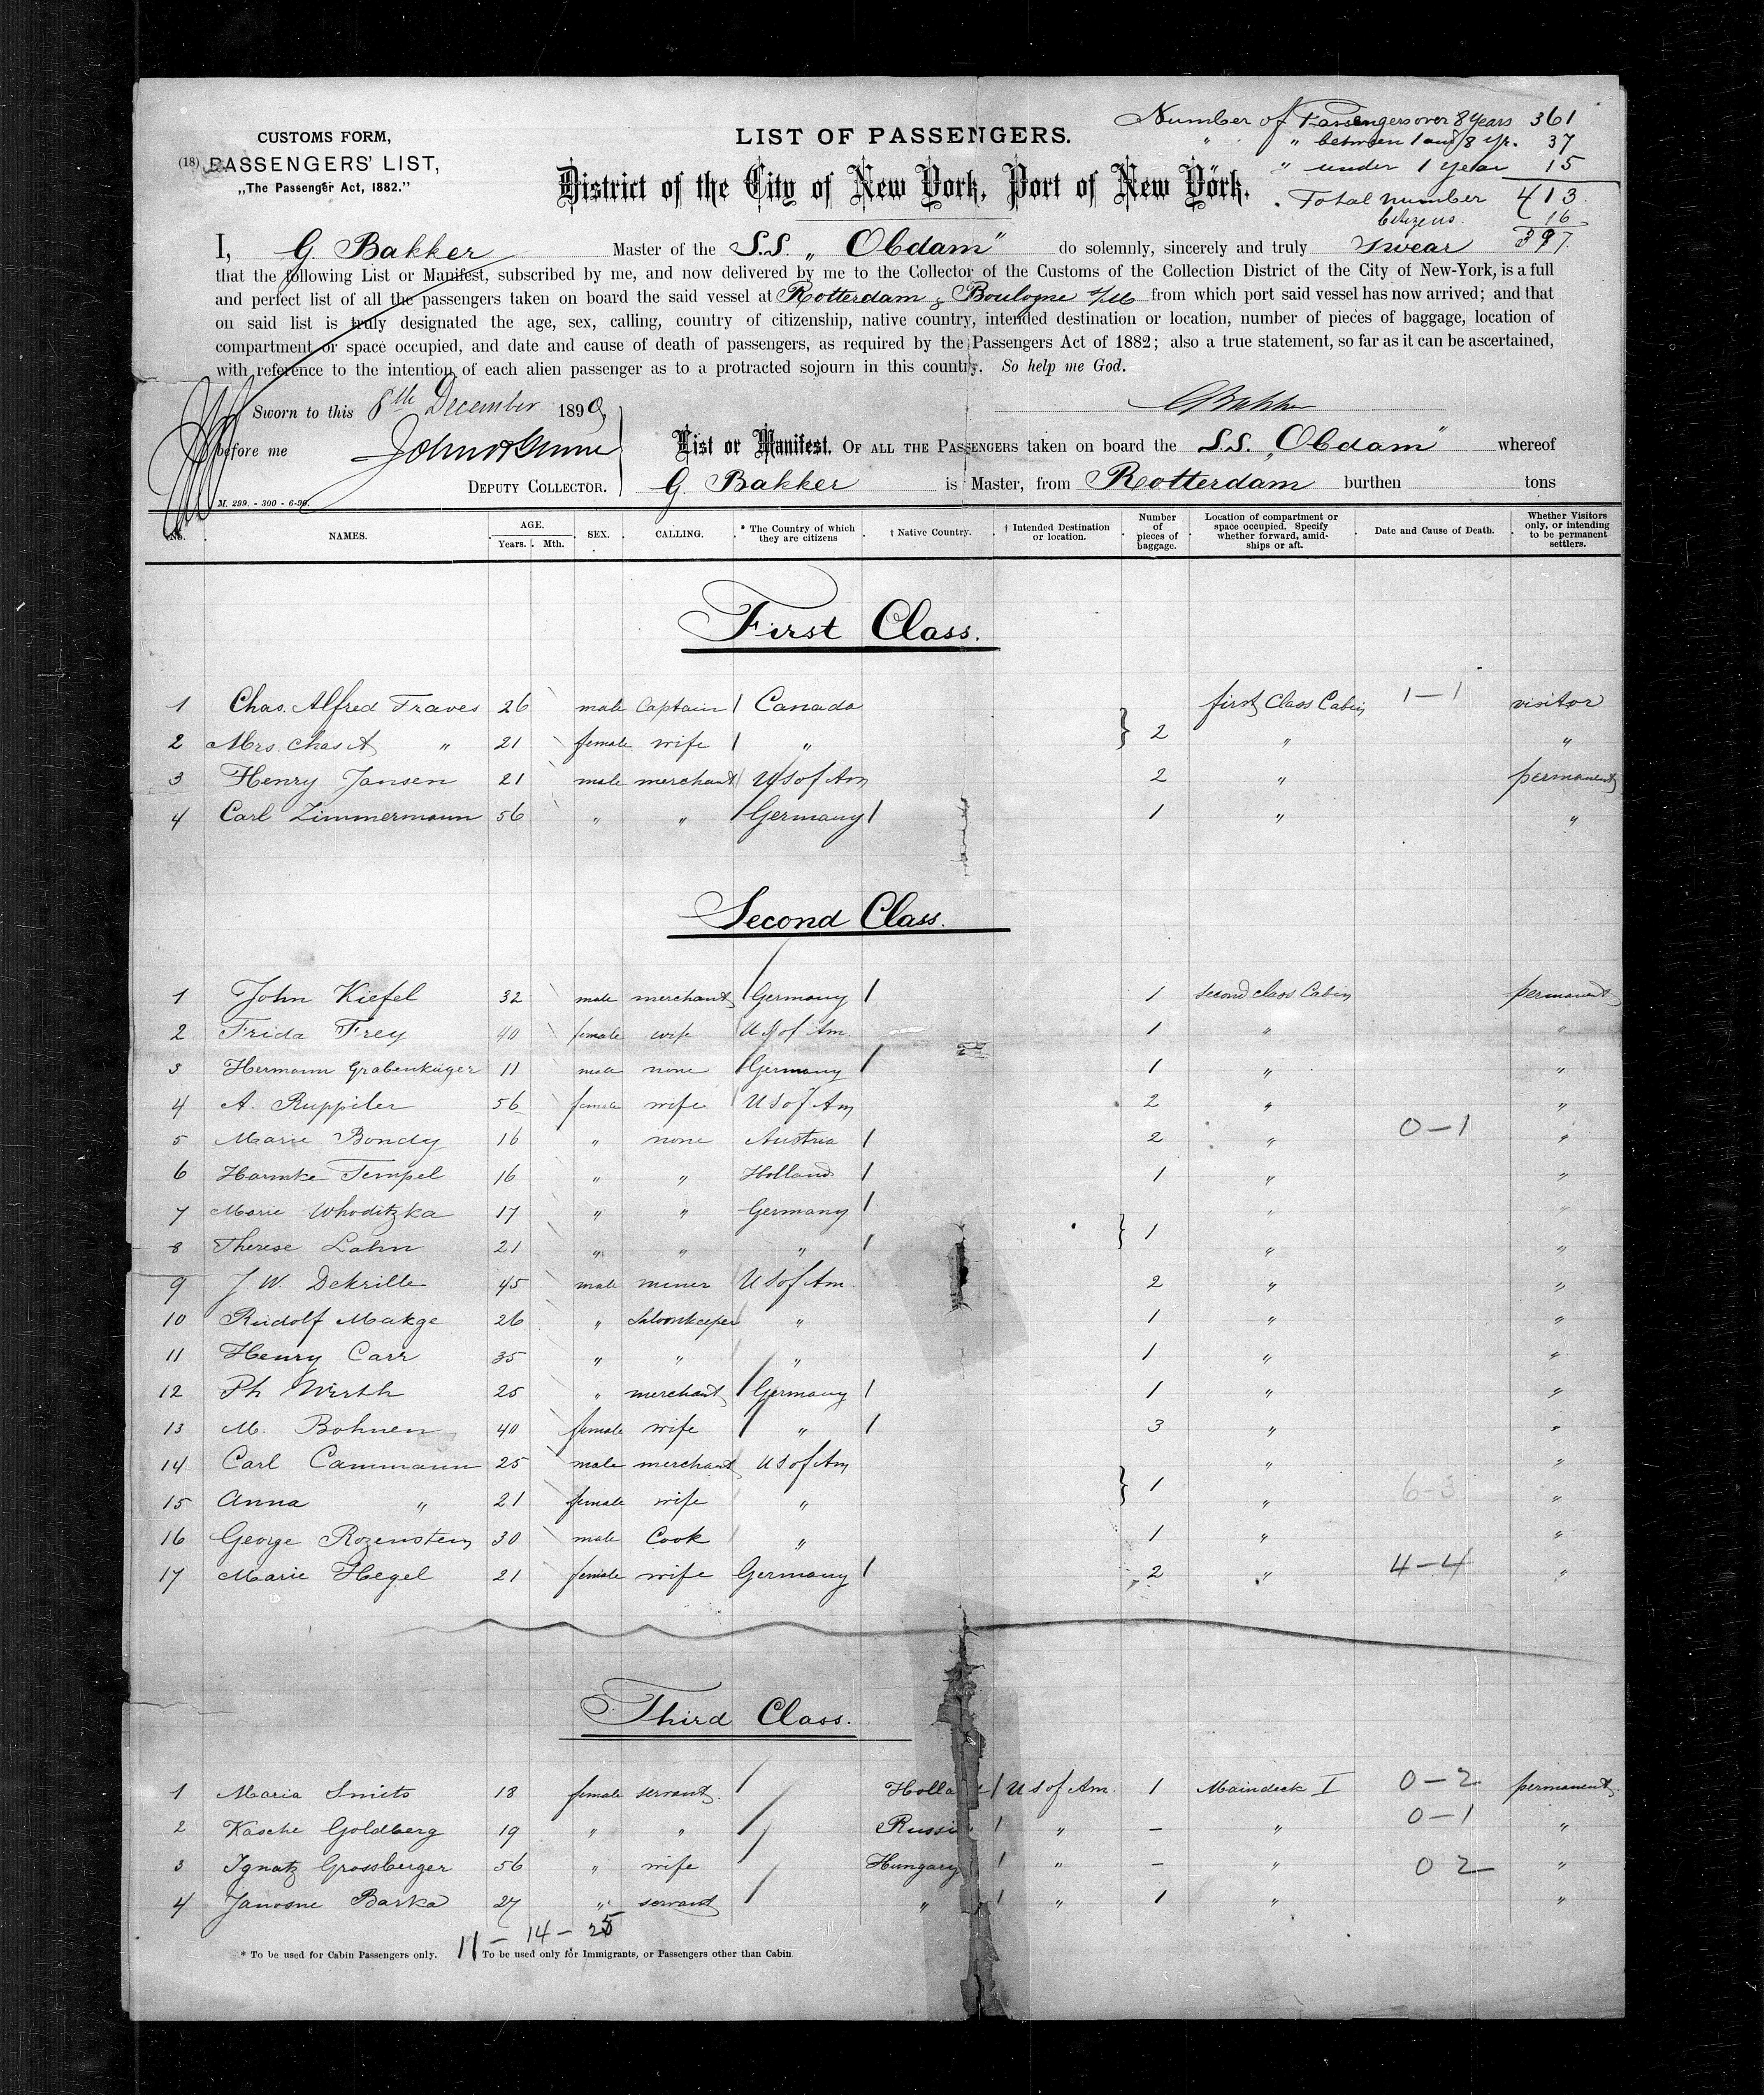 CUSTOMS FORM,
(18) PASSENGERS' LIST,
„The Passenger Act, 1882."
LIST OF PASSENGERS.
District of the City of New York, Port of New York.
Number of Passengers over 8 Years 361
" " between 1 and 8 yr. 37
" under 1 year 15
Total number 413
Citizens 16
397
I, G. Bakker Master of the S.S. „Obdam" do solemnly, sincerely and truly swear
that the following List or Manifest, subscribed by me, and now delivered by me to the Collector of the Customs of the Collection District of the City of New-York, is a full
and perfect list of all the passengers taken on board the said vessel at Rotterdam & Boulogne s/M from which port said vessel has now arrived; and that
on said list is truly designated the age, sex, calling, country of citizenship, native country, intended destination or location, number of pieces of baggage, location of
compartment or space occupied, and date and cause of death of passengers, as required by the Passengers Act of 1882; also a true statement, so far as it can be ascertained,
with reference to the intention of each alien passenger as to a protracted sojourn in this country. So help me God.
Sworn to this 8th December 1890
GBakker
before me
DEPUTY COLLECTOR.
M. 299. - 300 - 6-90.
List or Manifest. OF ALL THE PASSENGERS taken on board the S.S. „Obdam" whereof
G. Bakker is Master, from Rotterdam burthen tons
No. NAMES. AGE. Years. Mth. SEX. CALLING. * The Country of which they are citizens † Native Country. † Intended Destination or location. Number of pieces of baggage. Location of compartment or space occupied. Specify whether forward, amidships or aft. Date and Cause of Death. Whether Visitors only, or intending to be permanent settlers.
First Class.
1 Chas. Alfred Traves 26 male Captain Canada first Class Cabin 1-1 visitor
2 Mrs. Chas A " 21 female wife " } 2 " "
3 Henry Jansen 21 male merchant US of Am 2 " permanent
4 Carl Zimmermann 56 " " Germany 1 " "
Second Class.
1 John Kiefel 32 male merchant Germany 1 second class Cabin permanent
2 Frida Frey 40 female wife US of Am 1 " "
3 Hermann Grabenkuger 11 male none Germany 1 " "
4 A. Ruppiler 56 female wife US of Am 2 " "
5 Marie Bondy 16 " none Austria 2 " 0-1 "
6 Harmke Tempel 16 " " Holland 1 " "
7 Marie Whoditzka 17 " " Germany " "
8 Therese Lahn 21 " " " } 1 " "
9 J W. Dekrille 45 male miner US of Am. 2 " "
10 Rudolf Makge 26 " Saloonkeeper " 1 " "
11 Henry Carr 35 " " " 1 " "
12 Ph Wirth 25 " merchant Germany 1 " "
13 M. Bohnen 40 female wife " 3 " "
14 Carl Cammann 25 male merchant US of Am " "
15 Anna " 21 female wife " } 1 " 6-3 "
16 George Rozenstein 30 male Cook " 1 " "
17 Marie Hegel 21 female wife Germany 2 " 4-4 "
Third Class.
1 Maria Smits 18 female servant Holla US of Am. 1 Maindeck I 0-2 permanent
2 Kasche Goldberg 19 " " Russi " - " 0-1 "
3 Ignatz Grossberger 56 " wife Hungary " - " 0 2- "
4 Janosne Barka 27 " servant " " 1 " "
11 - 14 - 25
* To be used for Cabin Passengers only. To be used only for Immigrants, or Passengers other than Cabin.